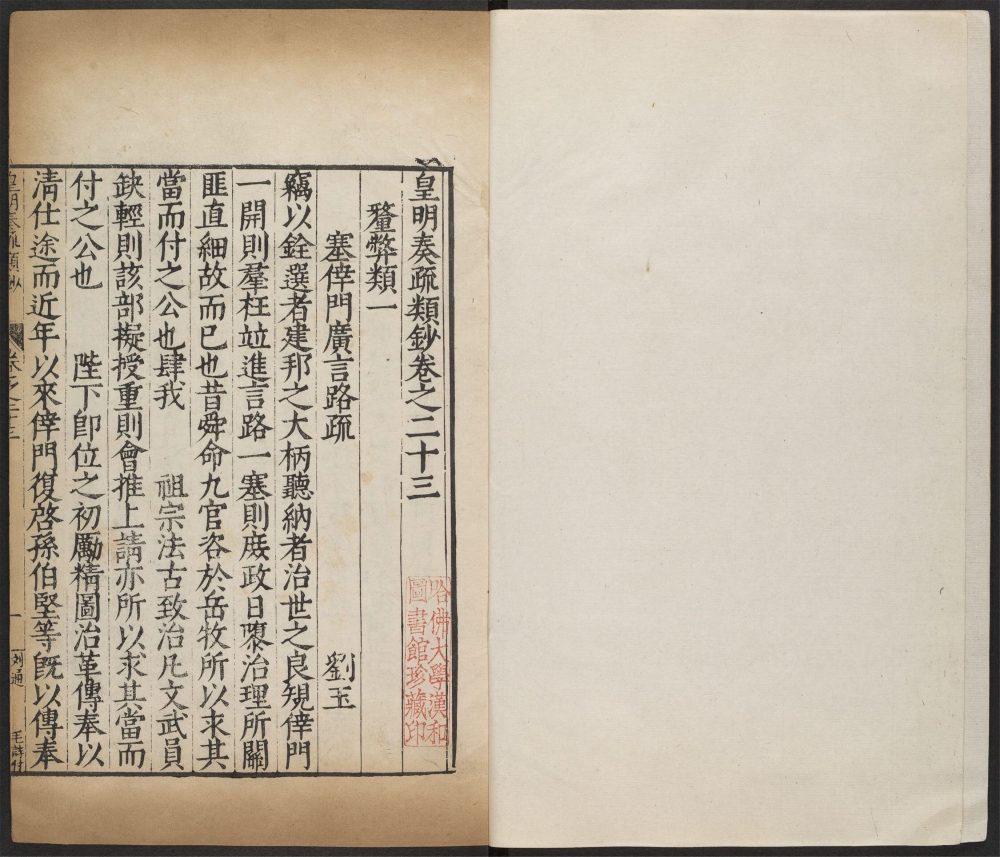 皇明奏疏類鈔卷之二十三
釐弊類一
塞倖門廣言路疏 劉玉
竊以銓選者建邦之大柄聽納者治世之良規倖門
一開則羣枉竝進言路一塞則庻政日隳治理所關
匪直細故而已也昔舜命九官咨於岳牧所以求其
當而付之公也肆我 祖宗法古致治凡文武員
缺輕則該部擬授重則會推上請亦所以求其當而
付之公也 陛下卽位之初勵精圖治革傳奉以
清仕途而近年以來倖門復啓孫伯堅等旣以傳奉
皇明奏疏類鈔 卷之二十三 一 刘通
哈佛大學漢和
圖書館珍藏印